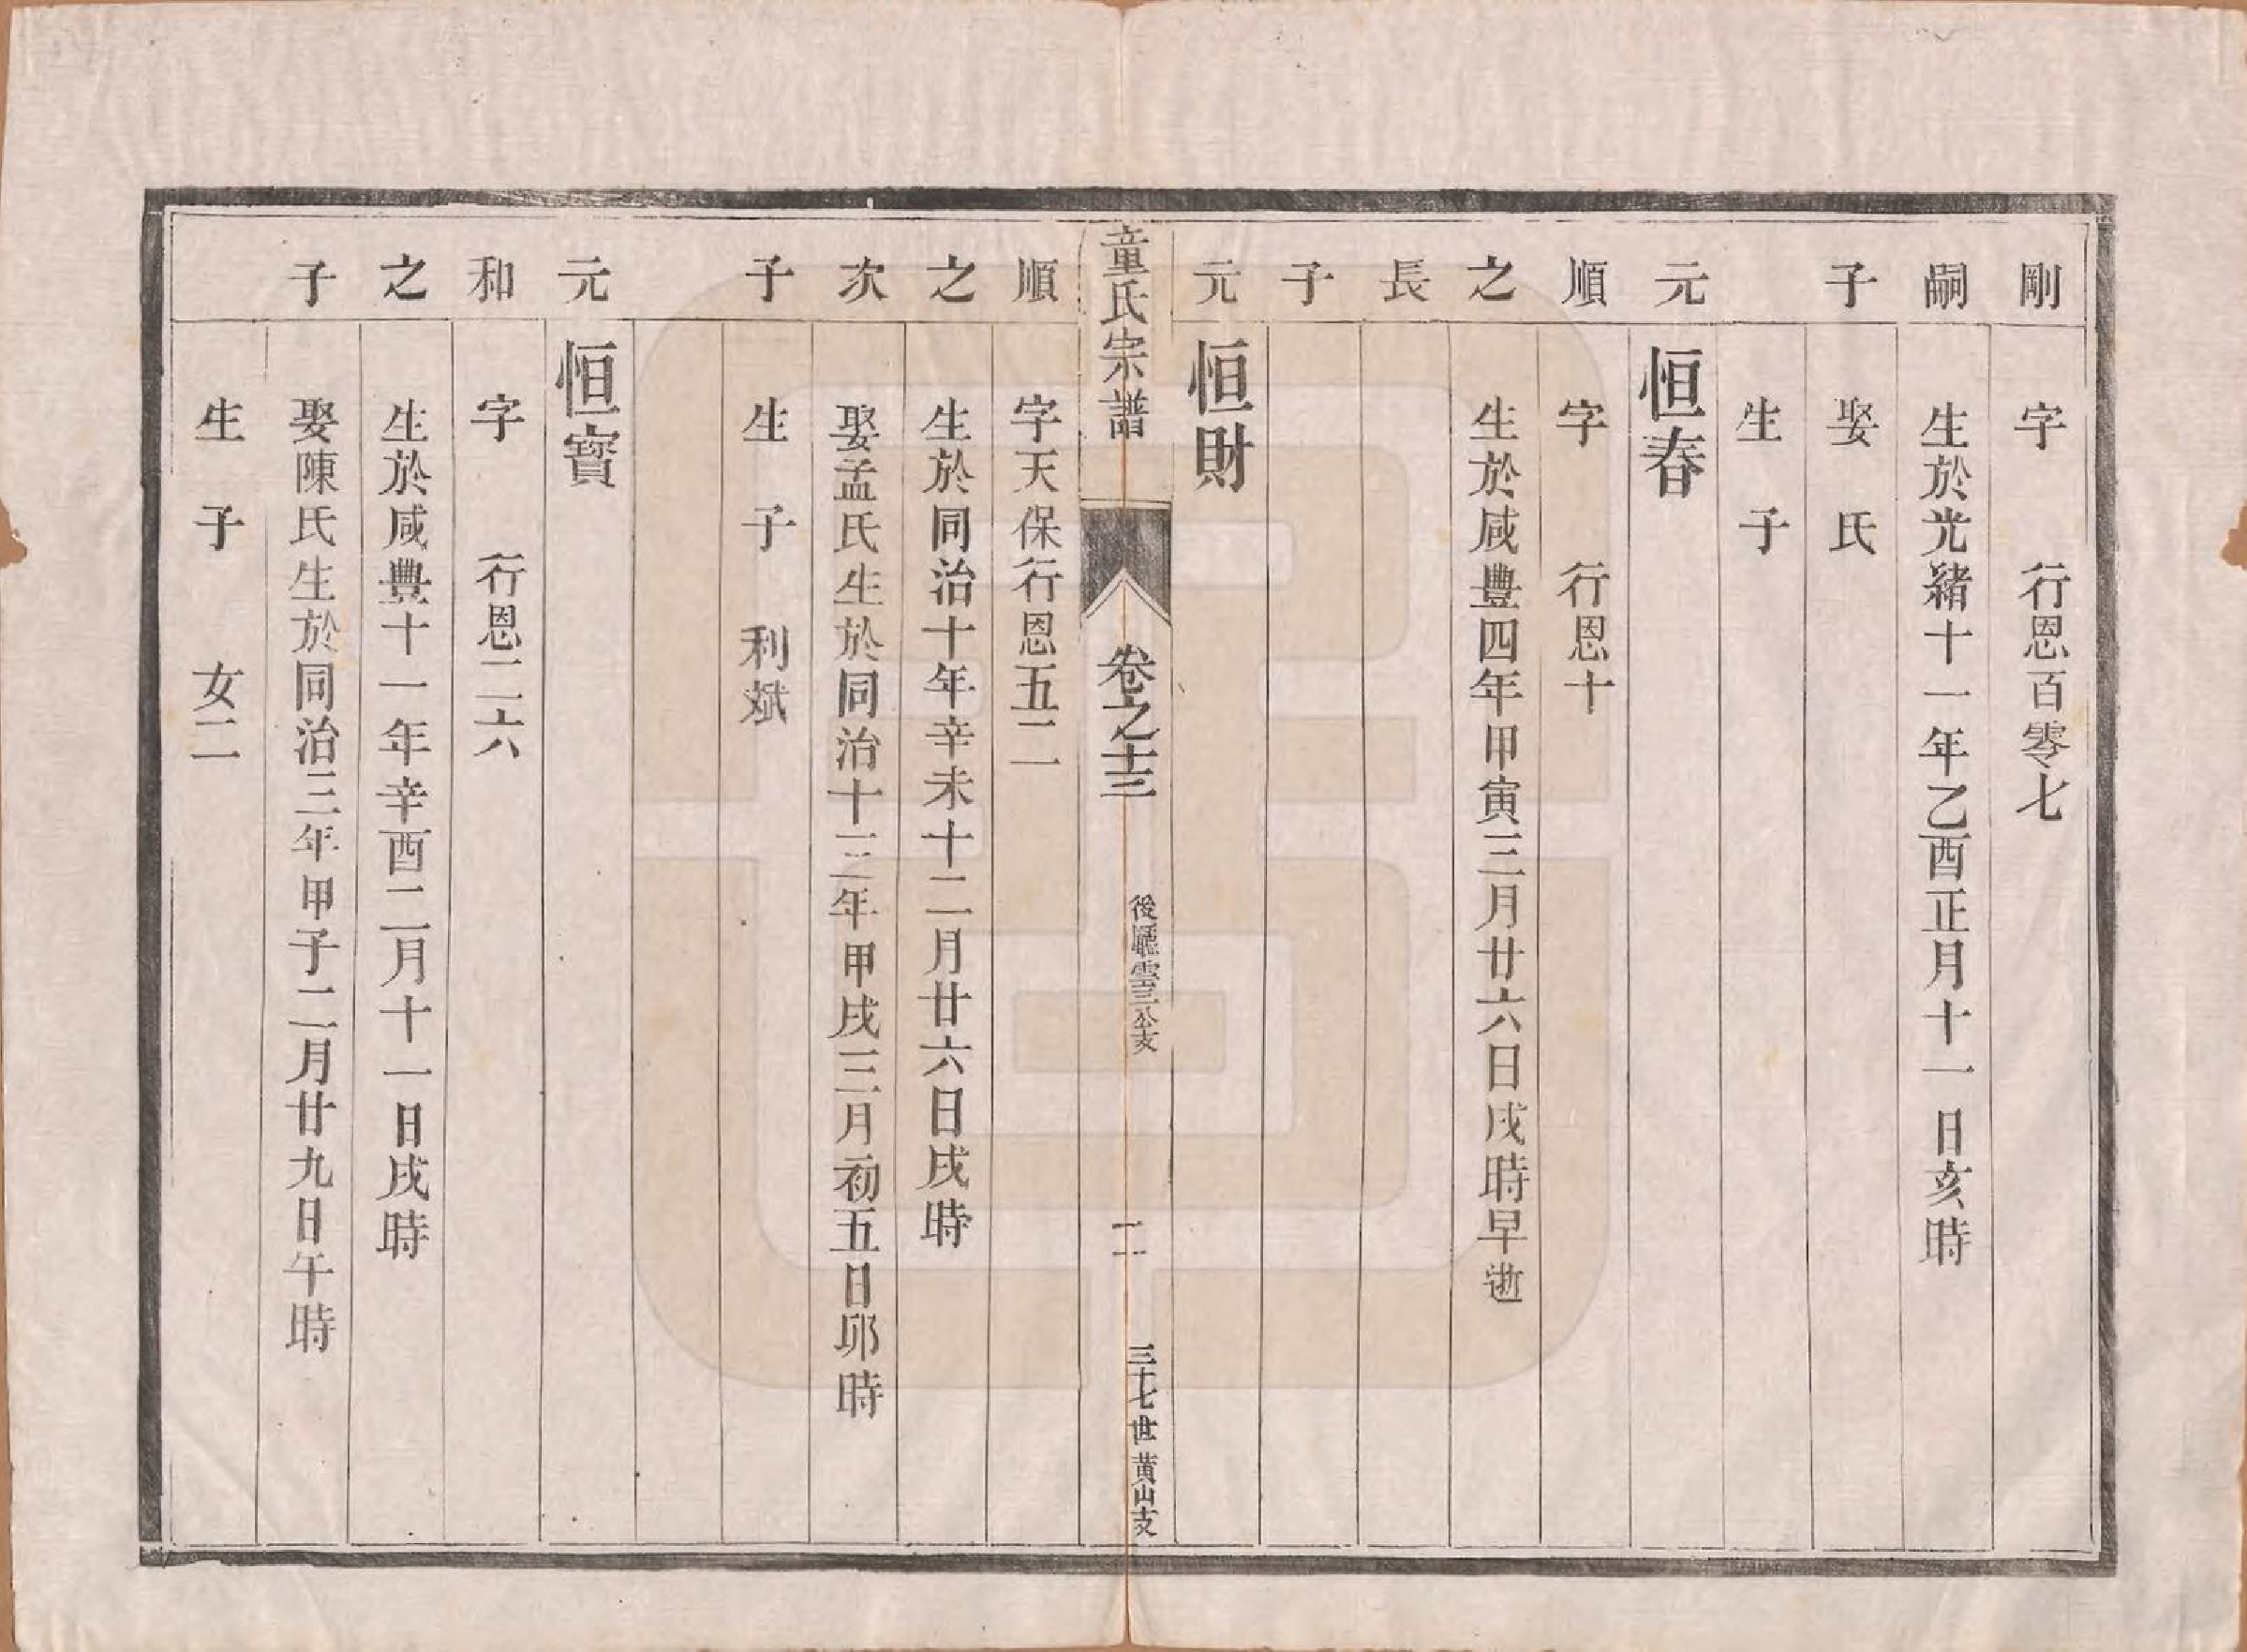 剛
字　行恩百零七
嗣
生於光緒十一年乙酉正月十一日亥時
子
娶　氏
生　子
元
恒春
順
字　行恩十
之
生於咸豐四年甲寅三月廿六日戌時早逝
長
子
元
恒財
童氏宗譜
卷之十三
二
三十七世黃山支
順
字天保行恩五二
之
生於同治十年辛未十二月廿六日戌時
次
娶孟氏生於同治十三年甲戌三月初五日邜時
子
生　子　利斌
元
恒寳
和
字　行恩二六
之
生於咸豐十一年辛酉二月十一日戌時
子
娶陳氏生於同治三年甲子二月廿九日午時
生　子　女二